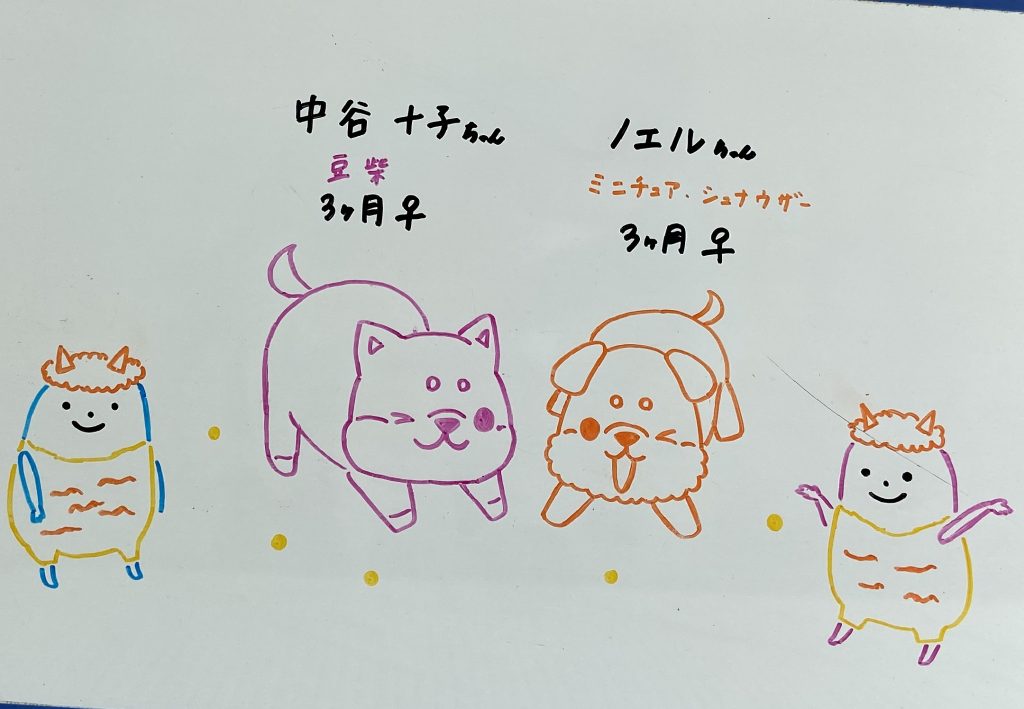 中谷 十子ちゃん
豆柴
3ヶ月 ♀
ノエルちゃん
ミニチュア、シュナウザー
3ヶ月 ♀